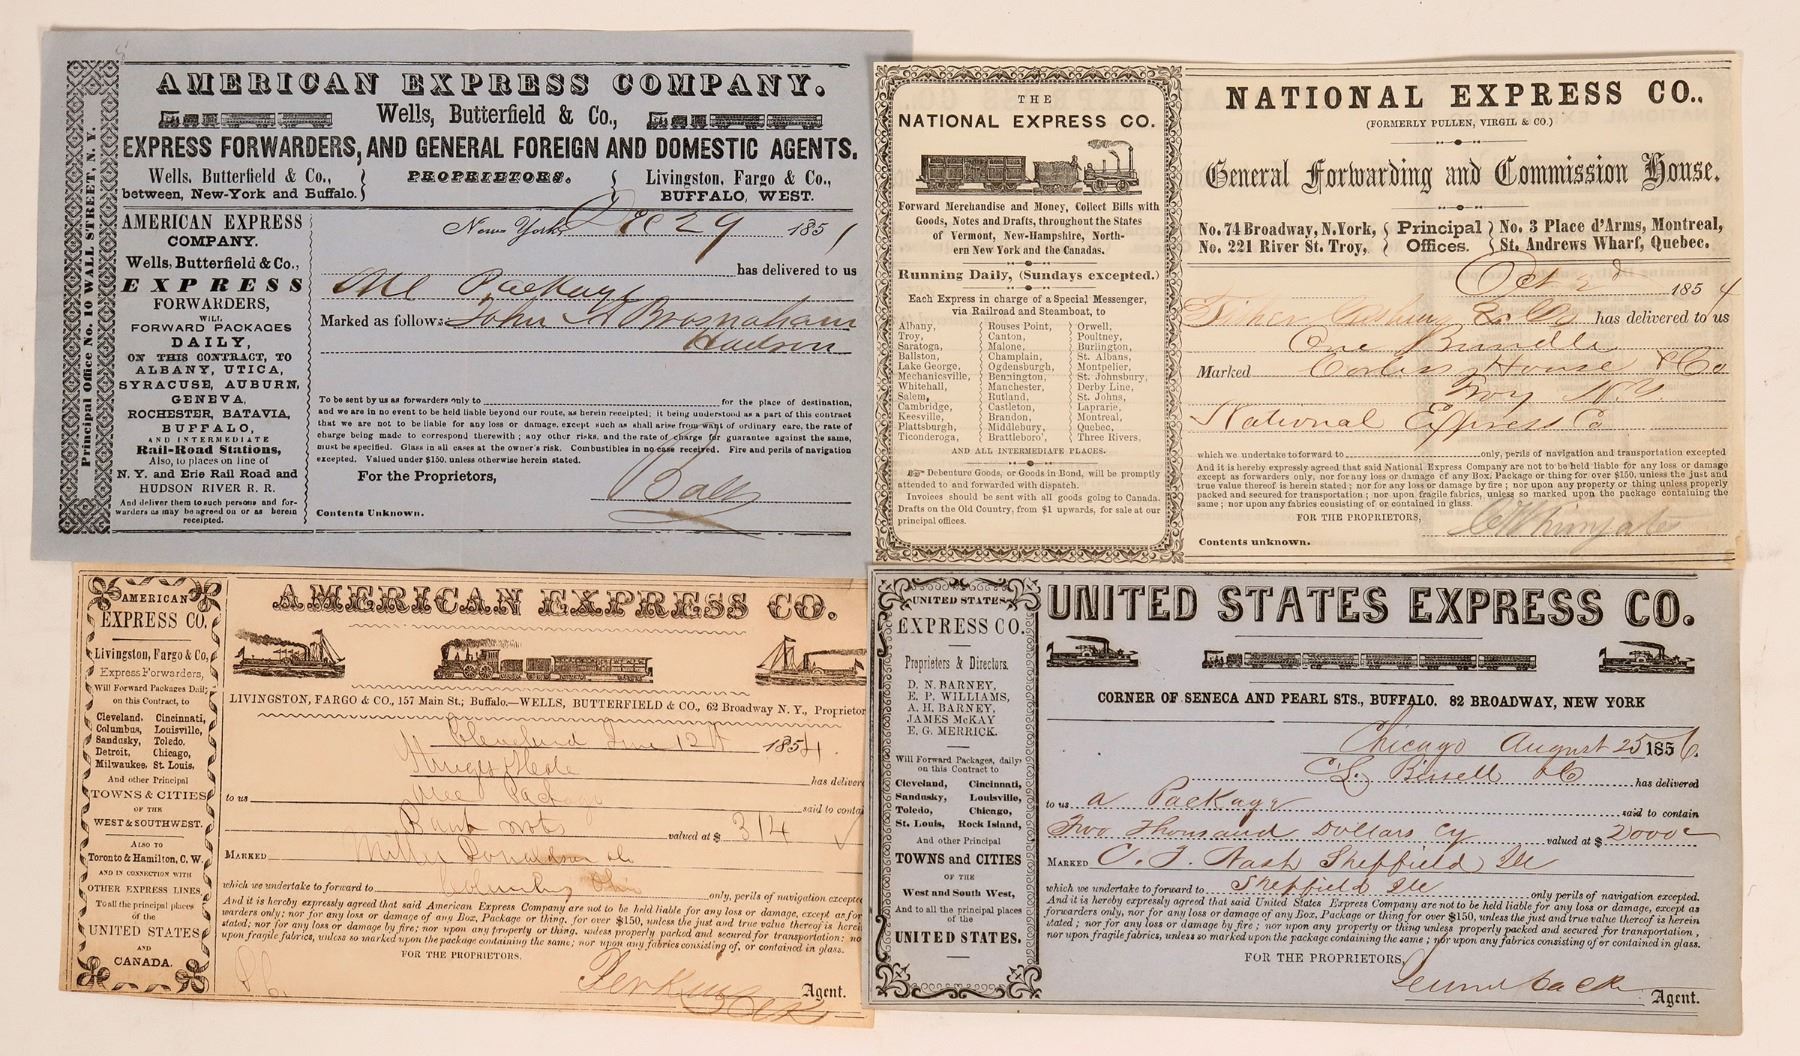 Principal Office No. 10 WALL STREET, N. Y.
AMERICAN EXPRESS COMPANY.
Wells, Butterfield & Co.,
EXPRESS FORWARDERS, AND GENERAL FOREIGN AND DOMESTIC AGENTS.
Wells, Butterfield & Co., between, New-York and Buffalo. } PROPRIETORS. { Livingston, Fargo & Co., BUFFALO, WEST.
AMERICAN EXPRESS
COMPANY.
Wells, Butterfield & Co.,
EXPRESS
FORWARDERS,
WILL
FORWARD PACKAGES
DAILY,
ON THIS CONTRACT, TO
ALBANY, UTICA,
SYRACUSE, AUBURN,
GENEVA,
ROCHESTER, BATAVIA,
BUFFALO,
AND INTERMEDIATE
Rail-Road Stations,
Also, to places on line of
N. Y. and Erie Rail Road and
HUDSON RIVER R. R.
And deliver them to such persons and for-
warders as may be agreed on or as herein
receipted.
New York Dec 29 1851
has delivered to us
One Package
Marked as follows: John
Hudson
To be sent by us as forwarders only to for the place of destination,
and we are in no event to be held liable beyond our route, as herein receipted; it being understood as a part of this contract
that we are not to be liable for any loss or damage, except such as shall arise from want of ordinary care, the rate of
charge being made to correspond therewith; any other risks, and the rate of charge for guarantee against the same,
must be specified. Glass in all cases at the owner's risk. Combustibles in no case received. Fire and perils of navigation
excepted. Valued under $150, unless otherwise herein stated.
For the Proprietors,
Contents Unknown.
THE
NATIONAL EXPRESS CO.
Forward Merchandise and Money, Collect Bills with
Goods, Notes and Drafts, throughout the States
of Vermont, New-Hampshire, North-
ern New York and the Canadas.
Running Daily, (Sundays excepted.)
Each Express in charge of a Special Messenger,
via Railroad and Steamboat, to
Albany, Rouses Point, Orwell,
Troy, Canton, Poultney,
Saratoga, Malone, Burlington,
Ballston, Champlain, St. Albans,
Lake George, Ogdensburgh, Montpelier,
Mechanicsville, Bennington, St. Johnsbury,
Whitehall, Manchester, Derby Line,
Salem, Rutland, St. Johns,
Cambridge, Castleton, Laprarie,
Keesville, Brandon, Montreal,
Plattsburgh, Middlebury, Quebec,
Ticonderoga, Brattleboro', Three Rivers,
AND ALL INTERMEDIATE PLACES.
☞ Debenture Goods, or Goods in Bond, will be promptly
attended to and forwarded with dispatch.
Invoices should be sent with all goods going to Canada.
Drafts on the Old Country, from $1 upwards, for sale at our
principal offices.
NATIONAL EXPRESS CO.,
(FORMERLY PULLEN, VIRGIL & CO.)
General Forwarding and Commission House.
No. 74 Broadway, N.York, { Principal } No. 3 Place d'Arms, Montreal,
No. 221 River St. Troy, { Offices. } St. Andrews Wharf, Quebec.
Oct 2d 1854
& Co has delivered to us
One Bundle
Marked Corliss House & Co
Troy N.Y.
National Express Co
which we undertake to forward to only, perils of navigation and transportation excepted
And it is hereby expressly agreed that said National Express Company are not to be held liable for any loss or damage
except as forwarders only, nor for any loss or damage of any Box, Package or thing for over $150, unless the just and
true value thereof is herein stated; nor for any loss or damage by fire; nor upon any property or thing unless properly
packed and secured for transportation; nor upon fragile fabrics, unless so marked upon the package containing the
same; nor upon any fabrics consisting of or contained in glass.
FOR THE PROPRIETORS,
Contents unknown.
AMERICAN
EXPRESS CO.
Livingston, Fargo & Co,
Express Forwarders,
Will Forward Packages Daily
on this Contract, to
Cleveland, Cincinnati,
Columbus, Louisville,
Sandusky, Toledo.
Detroit, Chicago,
Milwaukee, St. Louis,
And other Principal
TOWNS & CITIES
OF THE
WEST & SOUTHWEST.
ALSO TO
Toronto & Hamilton, C. W.
AND IN CONNECTION WITH
OTHER EXPRESS LINES,
To all the principal places
of the
UNITED STATES
AND
CANADA.
AMERICAN EXPRESS CO.
LIVINGSTON, FARGO & CO., 157 Main St., Buffalo.—WELLS, BUTTERFIELD & CO., 62 Broadway N. Y., Proprietor
Cleveland June 12th 1854
has delivere
to us One Package said to conta
Bank nots valued at $ 314
MARKED Miller Donaldson & Co
which we undertake to forward to Columbus Ohio only, perils of navigation excepted
And it is hereby expressly agreed that said American Express Company are not to be held liable for any loss or damage, except as for
warders only; nor for any loss or damage of any Box, Package or thing, for over $150, unless the just and true value thereof is herein
stated; nor for any loss or damage by fire; nor upon any property or thing, unless properly packed and secured for transportation; no
upon fragile fabrics, unless so marked upon the package containing the same; nor upon any fabrics consisting of, or contained in glass.
FOR THE PROPRIETORS.
Agent.
UNITED STATES
EXPRESS CO.
Proprieters & Directors.
D. N. BARNEY,
E. P. WILLIAMS,
A. H. BARNEY,
JAMES McKAY
E. G. MERRICK.
Will Forward Packages, daily
on this Contract to
Cleveland, Cincinnati,
Sandusky, Louisville,
Toledo, Chicago,
St. Louis, Rock Island,
And other Principal
TOWNS and CITIES
OF THE
West and South West,
And to all the principal places
of the
UNITED STATES.
UNITED STATES EXPRESS CO.
CORNER OF SENECA AND PEARL STS., BUFFALO. 82 BROADWAY, NEW YORK
Chicago August 25 1856.
C L Bissell & Co has delivered
to us a Package said to contain
Two Thousand Dollars Cy valued at $ 2000
MARKED C. J. Nash Sheffield Ill
which we undertake to forward to Sheffield Ill only perils of navigation excepted.
And it is hereby expressly agreed that said United States Express Company are not to be held liable for any loss or damage, except as
forwarders only, nor for any loss or damage of any Box, Package or thing for over $150, unless the just and true value thereof is herein
stated; nor for any loss or damage by fire; nor upon any property or thing unless properly packed and secured for transportation,
nor upon fragile fabrics, unless so marked upon the package containing the same; nor upon any fabrics consisting of or contained in glass.
FOR THE PROPRIETORS,
Agent.